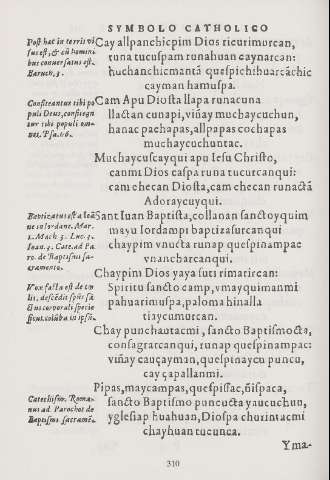 SYMBOLO CATHOLICO
Post hæc in terris vi-
sus est, & cū homini-
bus conuersatus est.
Baruch. 3.
Cay allpanchicpim Dios ricurimorcan,
runa tucuspam runahuan caynarcan:
huchanchicmantā quespichihuarcāchic
cayman hamuspa.
Confiteantur tibi po
puli Deus, confiteā
tur tibi populi om-
nes. Psa. 66.
Cam Apu Diosta llapa runacuna
llactan cunapi, viñay muchaycuchun,
hanac pachapas, allpapas cochapas
muchaycuchuntac.
Muchaycuscayqui apu Iesu Christo,
canmi Dios caspa runa tucurcanqui:
cam checan Diosta, cam checan runactā
Adoraycuyqui.
Baptizatus est a Ioā
ne in Iordane. Mar.
1. Mach. 3. Luc. 3.
Ioan. 3. Cate. ad Pa
ro. de Baptismi sa-
cramento.
Sant Iuan Baptista, collanan sanctoyquim
mayu Iordampi baptizasurcanqui
chaypim vnucta runap quespinampac
vnancharcanqui.
Vox facta est de cœ
lis, descēdit spūs sā
ctus corporali specie
sicut colūba in ipsū.
Chaypim Dios yaya suti rimarircan:
Spiritu sancto camp, vmayquimanmi
pahuarimuspa, paloma hinalla
tiaycumurcan.
Chay punchautacmi, sancto Baptismocta,
consagrarcanqui, runap quespinampac:
viñay caucayman, quespinayco puncu,
cay çapallanmi.
Catechismo. Roma-
nus ad Parochos de
Baptismi sacramē.
Pipas, maycampas, quespissac, ñispaca,
sancto Baptismo puncucta yaucuchun,
yglesiap huahuan, Diospa churintacmi
chayhuan tucunca.
Yma-
310